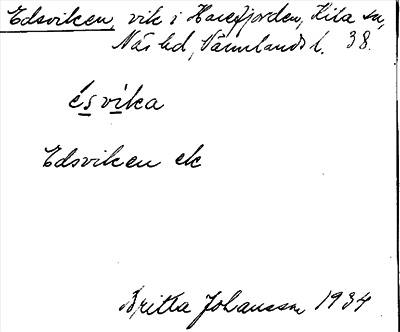 Edsviken, vik i Harefjorden, Kila sn,
Näs hd, Värmlands l. 38.
ésvika
Edsviken ek
Britta Johansson 1934